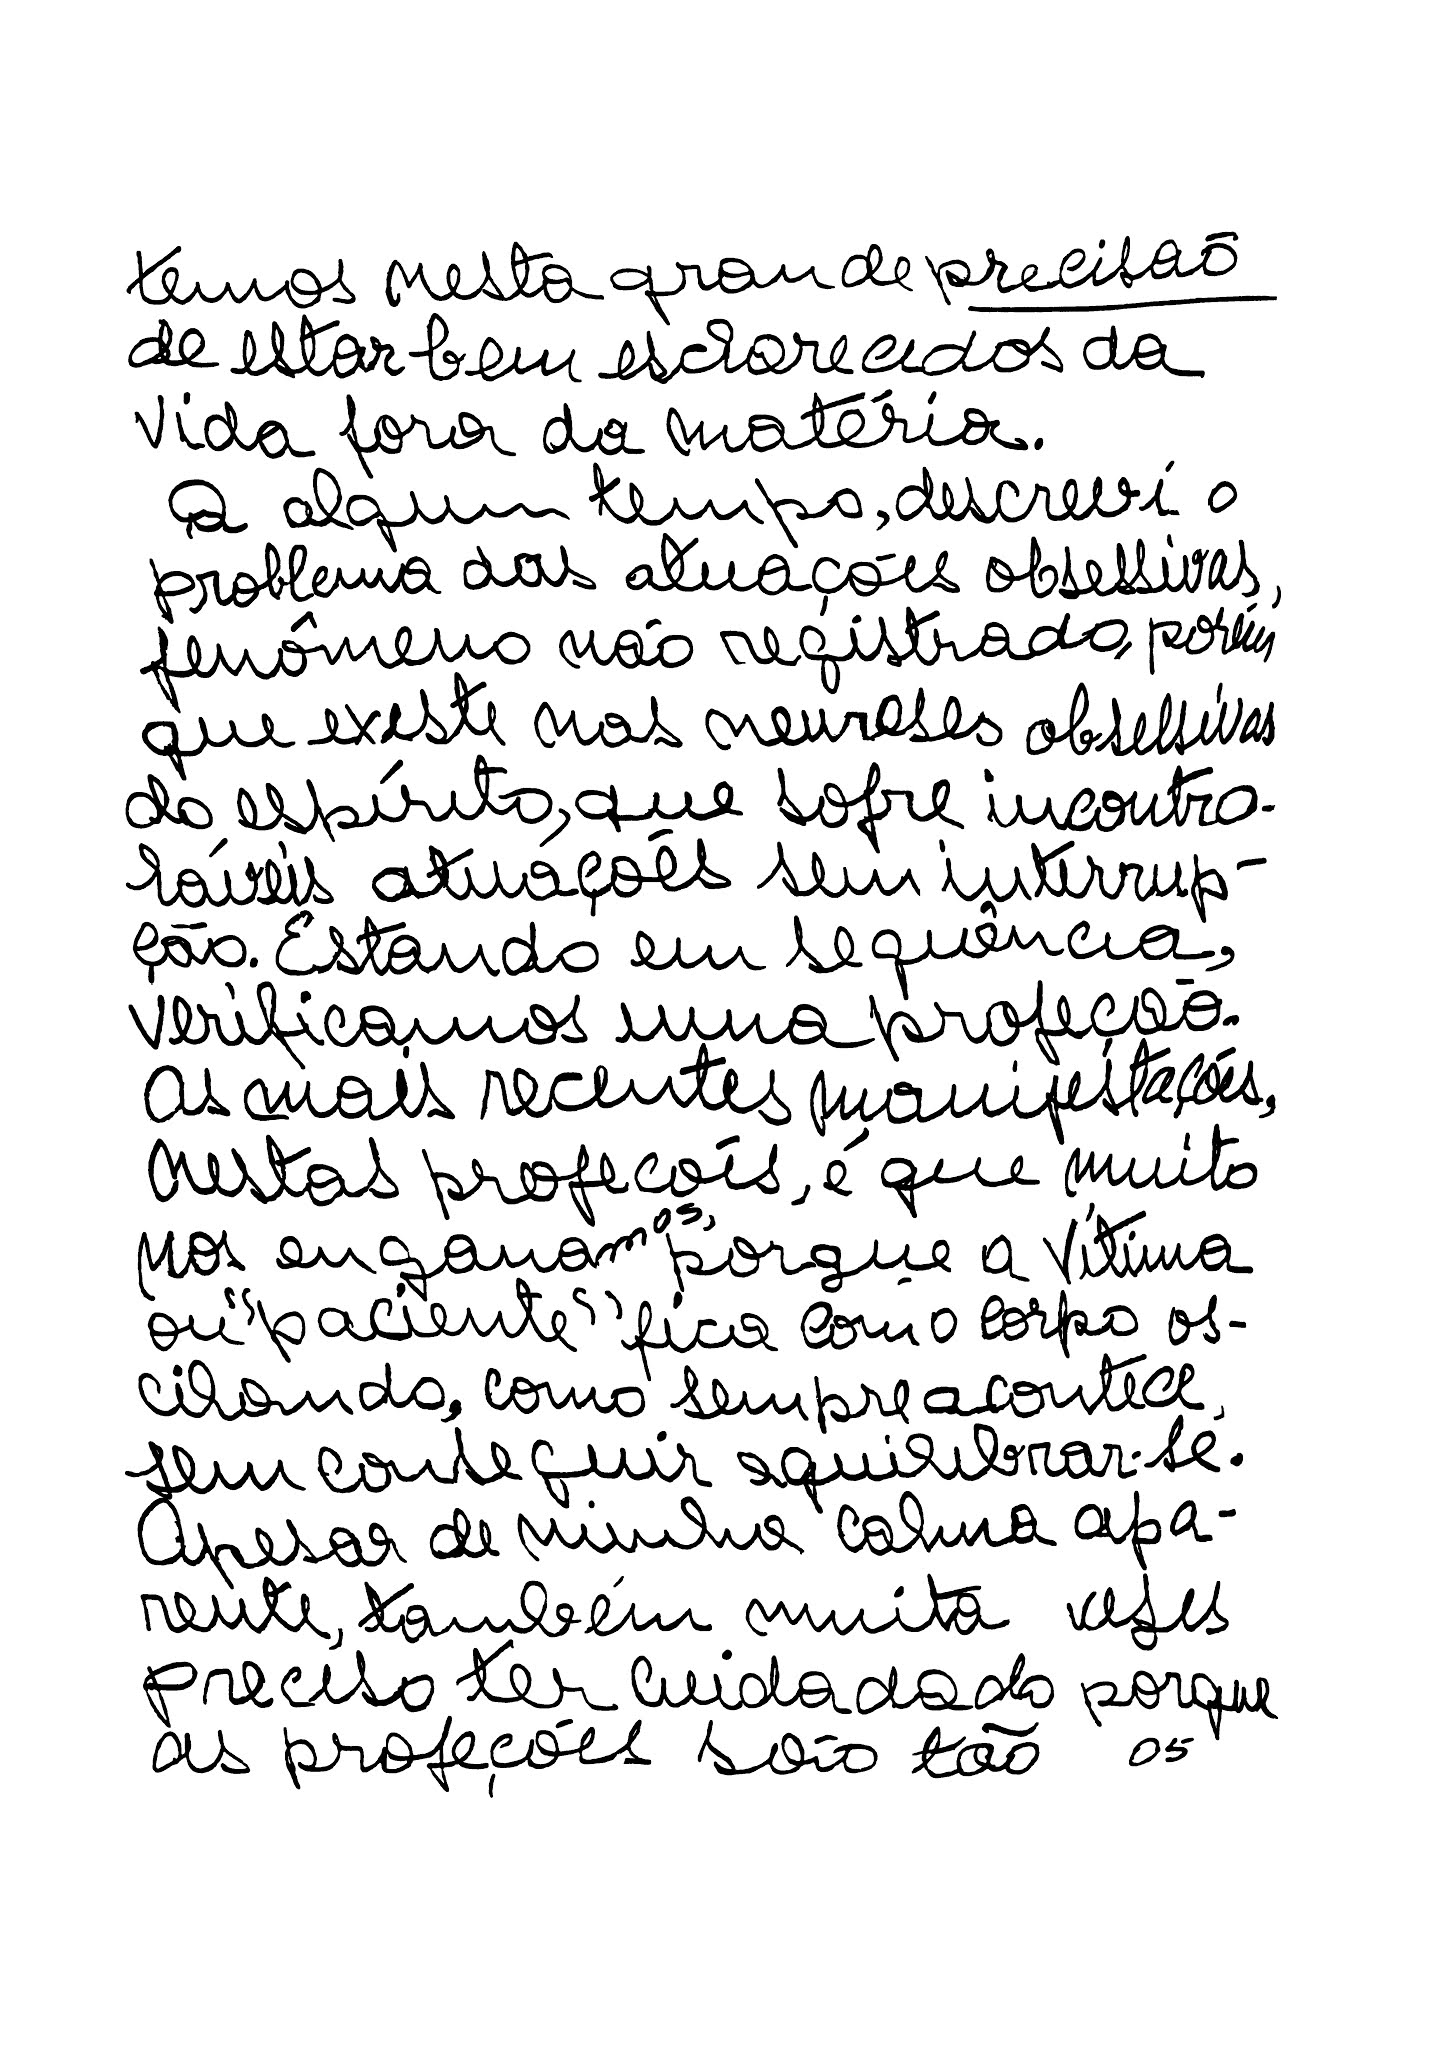 temos nesta grande precisaõ
de estar bem esclarecidos da
vida fora da matéria.
A algum tempo, descrevi o
problema das atuações obsessivas,
fenômeno não registrado, porém
que existe nas neuroses obsessivas
do espírito, que sofre incontro-
láveis atuações sem interrup-
ção. Estando em sequência,
verificamos uma profeçaõ.
As mais recentes manifestações,
nestas profecoẽs, é que muito
nos enganamos, porque a vítima
ou "paciente" fica com o corpo os-
cilando, como sempre acontece,
sem conseguir equilibrar-se.
Apesar de minha calma apa-
rente, também muita vezes
preciso ter cuidadado porque
as profeções são tão 05